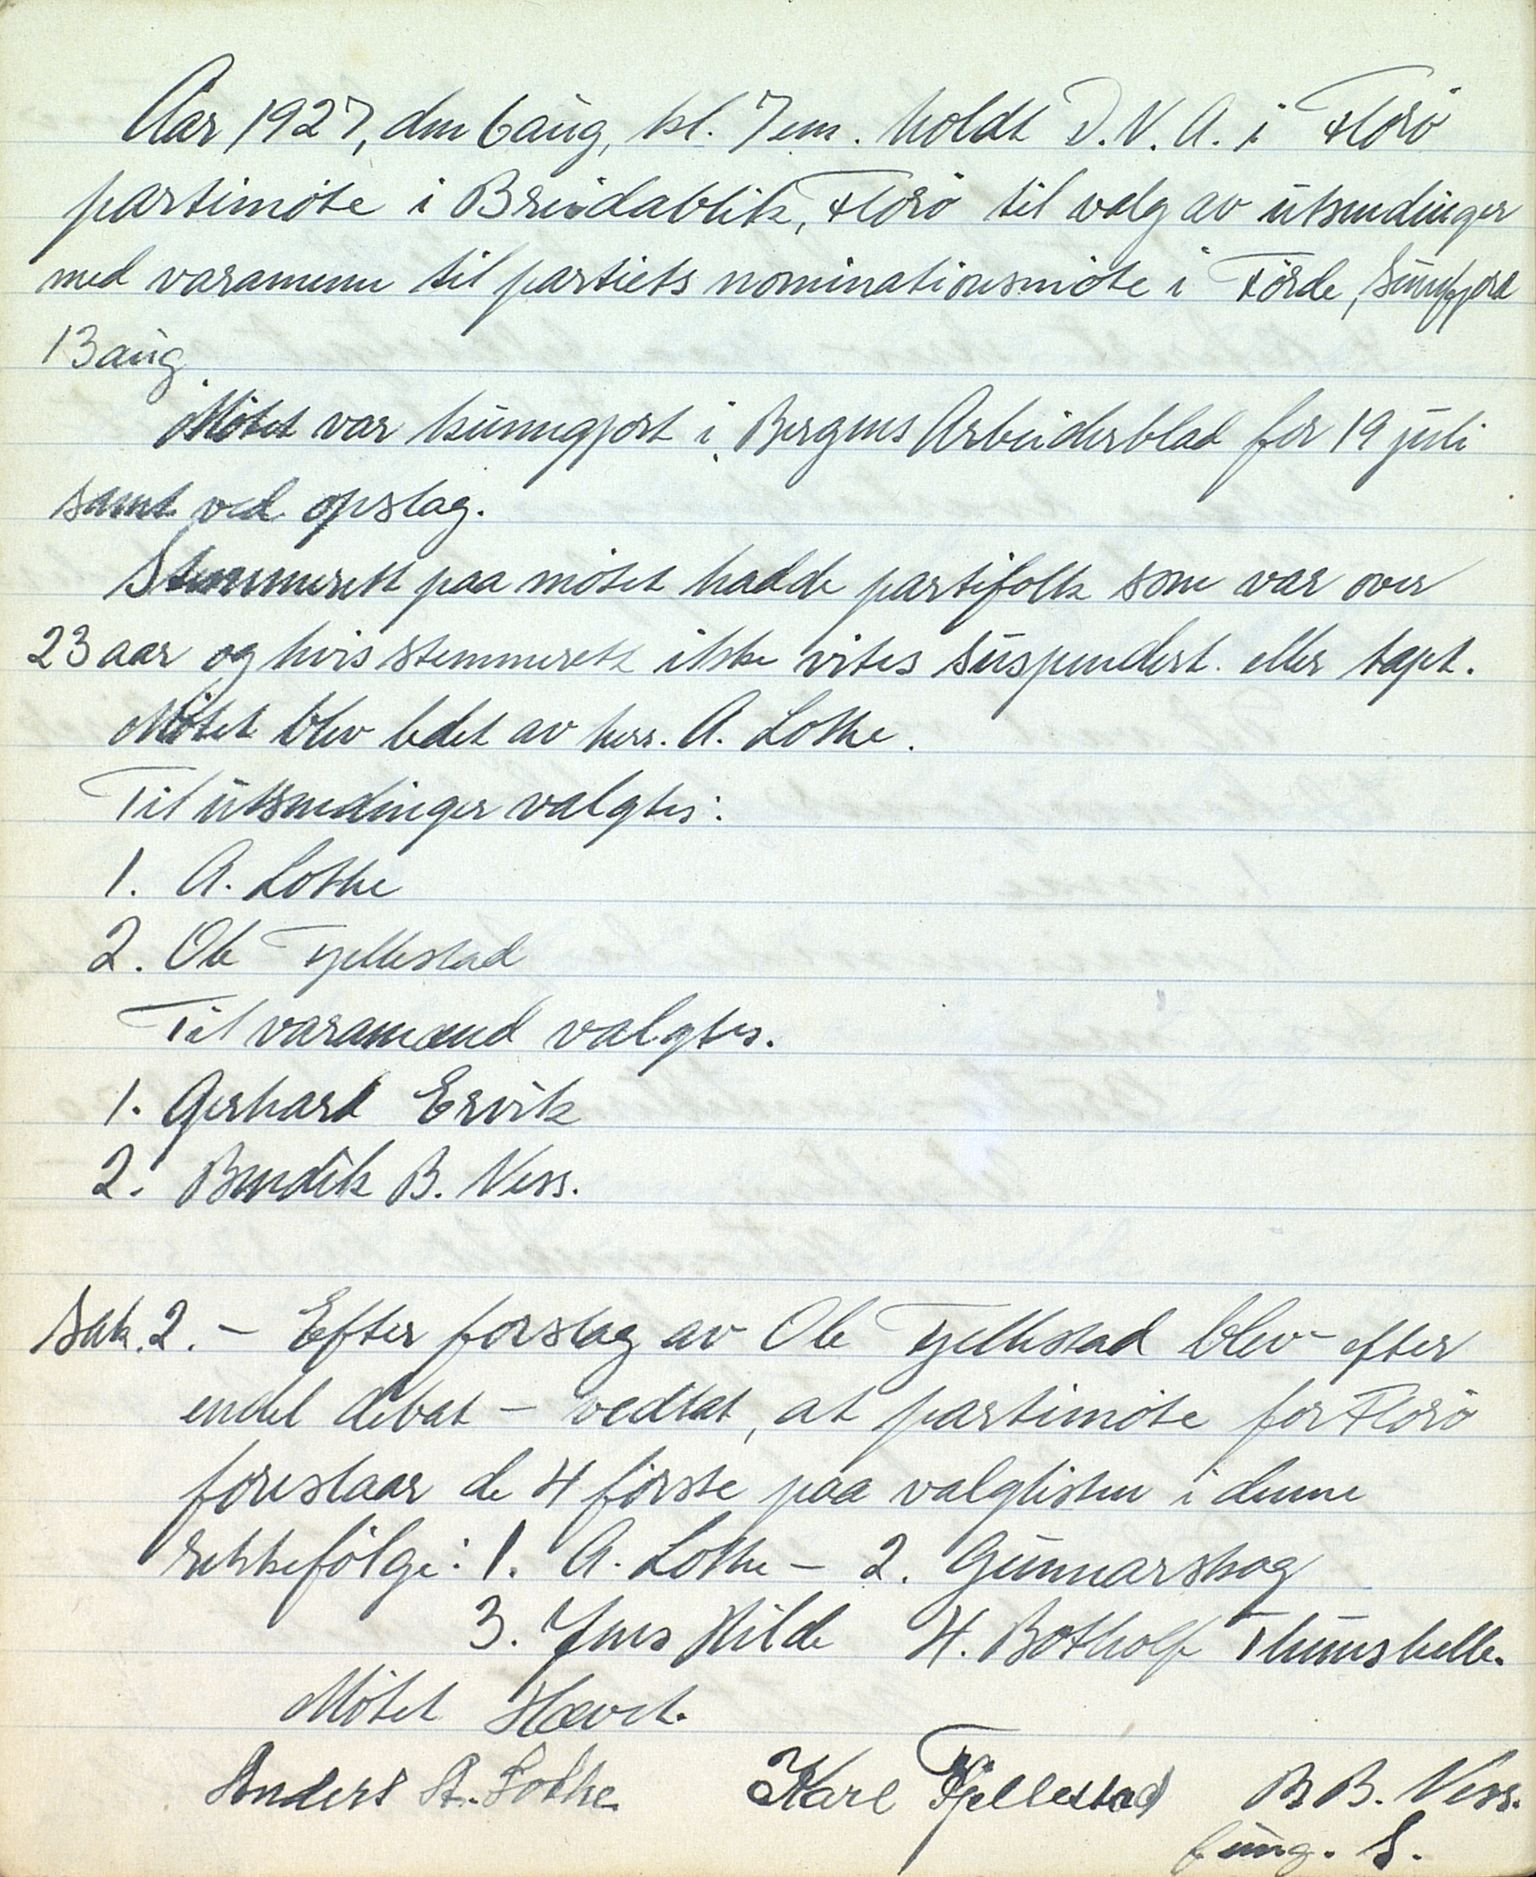 Aar 1927, den 6 aug, kl. 7 em. holdt D.N.A. i Florø
partimøte i Breidablik, Florø til valg av utsendinger
med varamenn til partiets nominationsmøte i Førde, Sunnfjord
13 aug
Møtet var kunngjort i Bergens Arbeiderblad for 19 juli
samt ved opslag.
Stemmerett paa møtet hadde partifolk som var over
23 aar og hvis stemmerett ikke vites suspendert eller tapt.
Møtet blev ledet av herr. A. Lothe.
Til utsendinger valgtes:
1. A. Lothe
2. Ole Fjellestad
Til varamænd valgtes.
1. Gerhard Ervik
2. Bendik B. Ness.
Sak. 2. - Efter forslag av Ole Fjellestad blev - efter
endel debat - vedtat, at partimøte for Florø
foreslaar de 4 første paa valglisten i denne
rekkefølge: 1. A. Lothe - 2. Gunnarskog
3. Jens Hilde 4. Botholf
Møtet Hævet.
Anders A. Lothe. Karl Fjellestad B B. Ness.
fung. S.